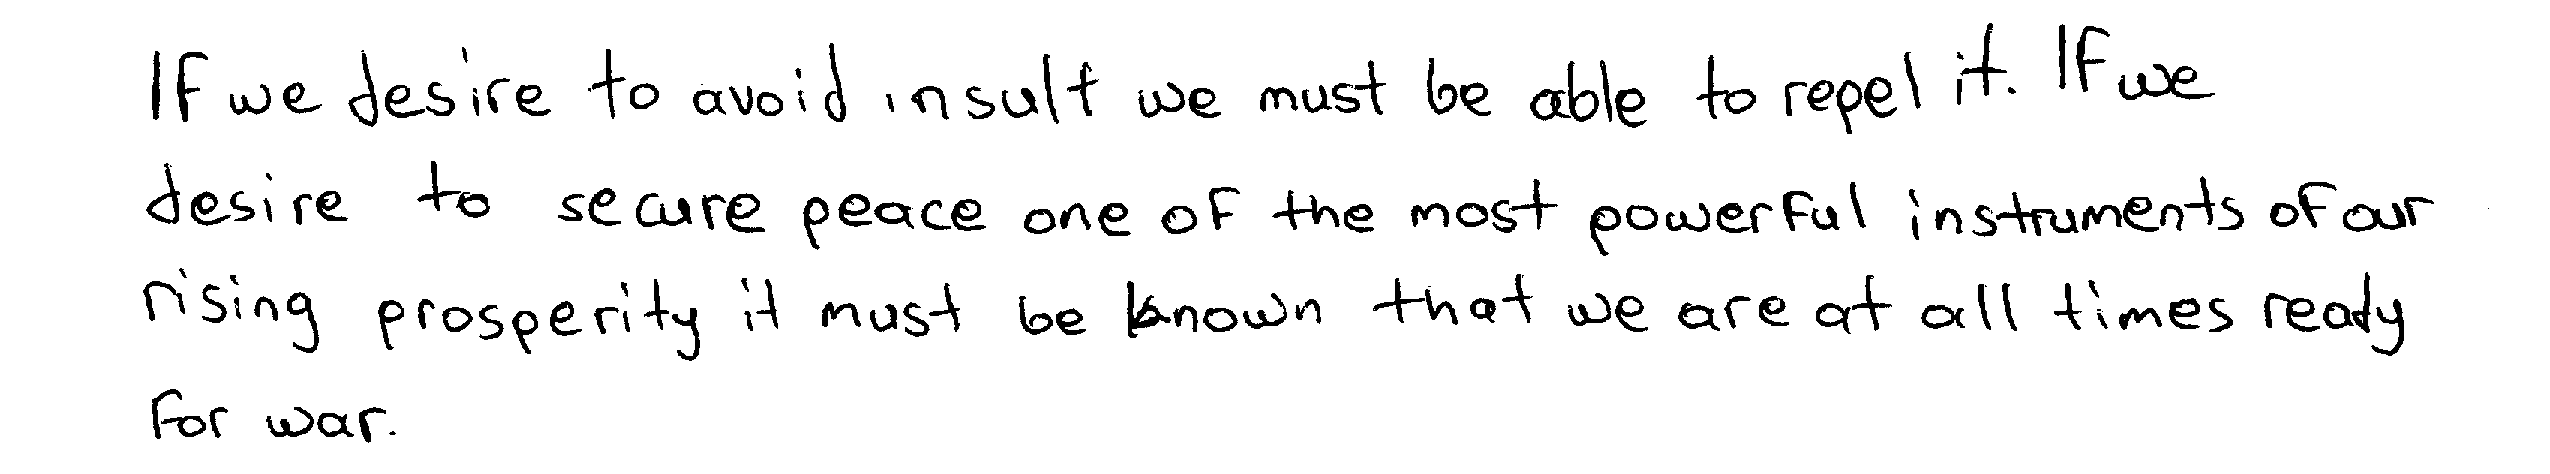 If we desire to avoid insult we must be able to repel it. If we
desire to secure peace one of the most powerful instruments of our
rising prosperity it must be known that we are at all times ready
for war.